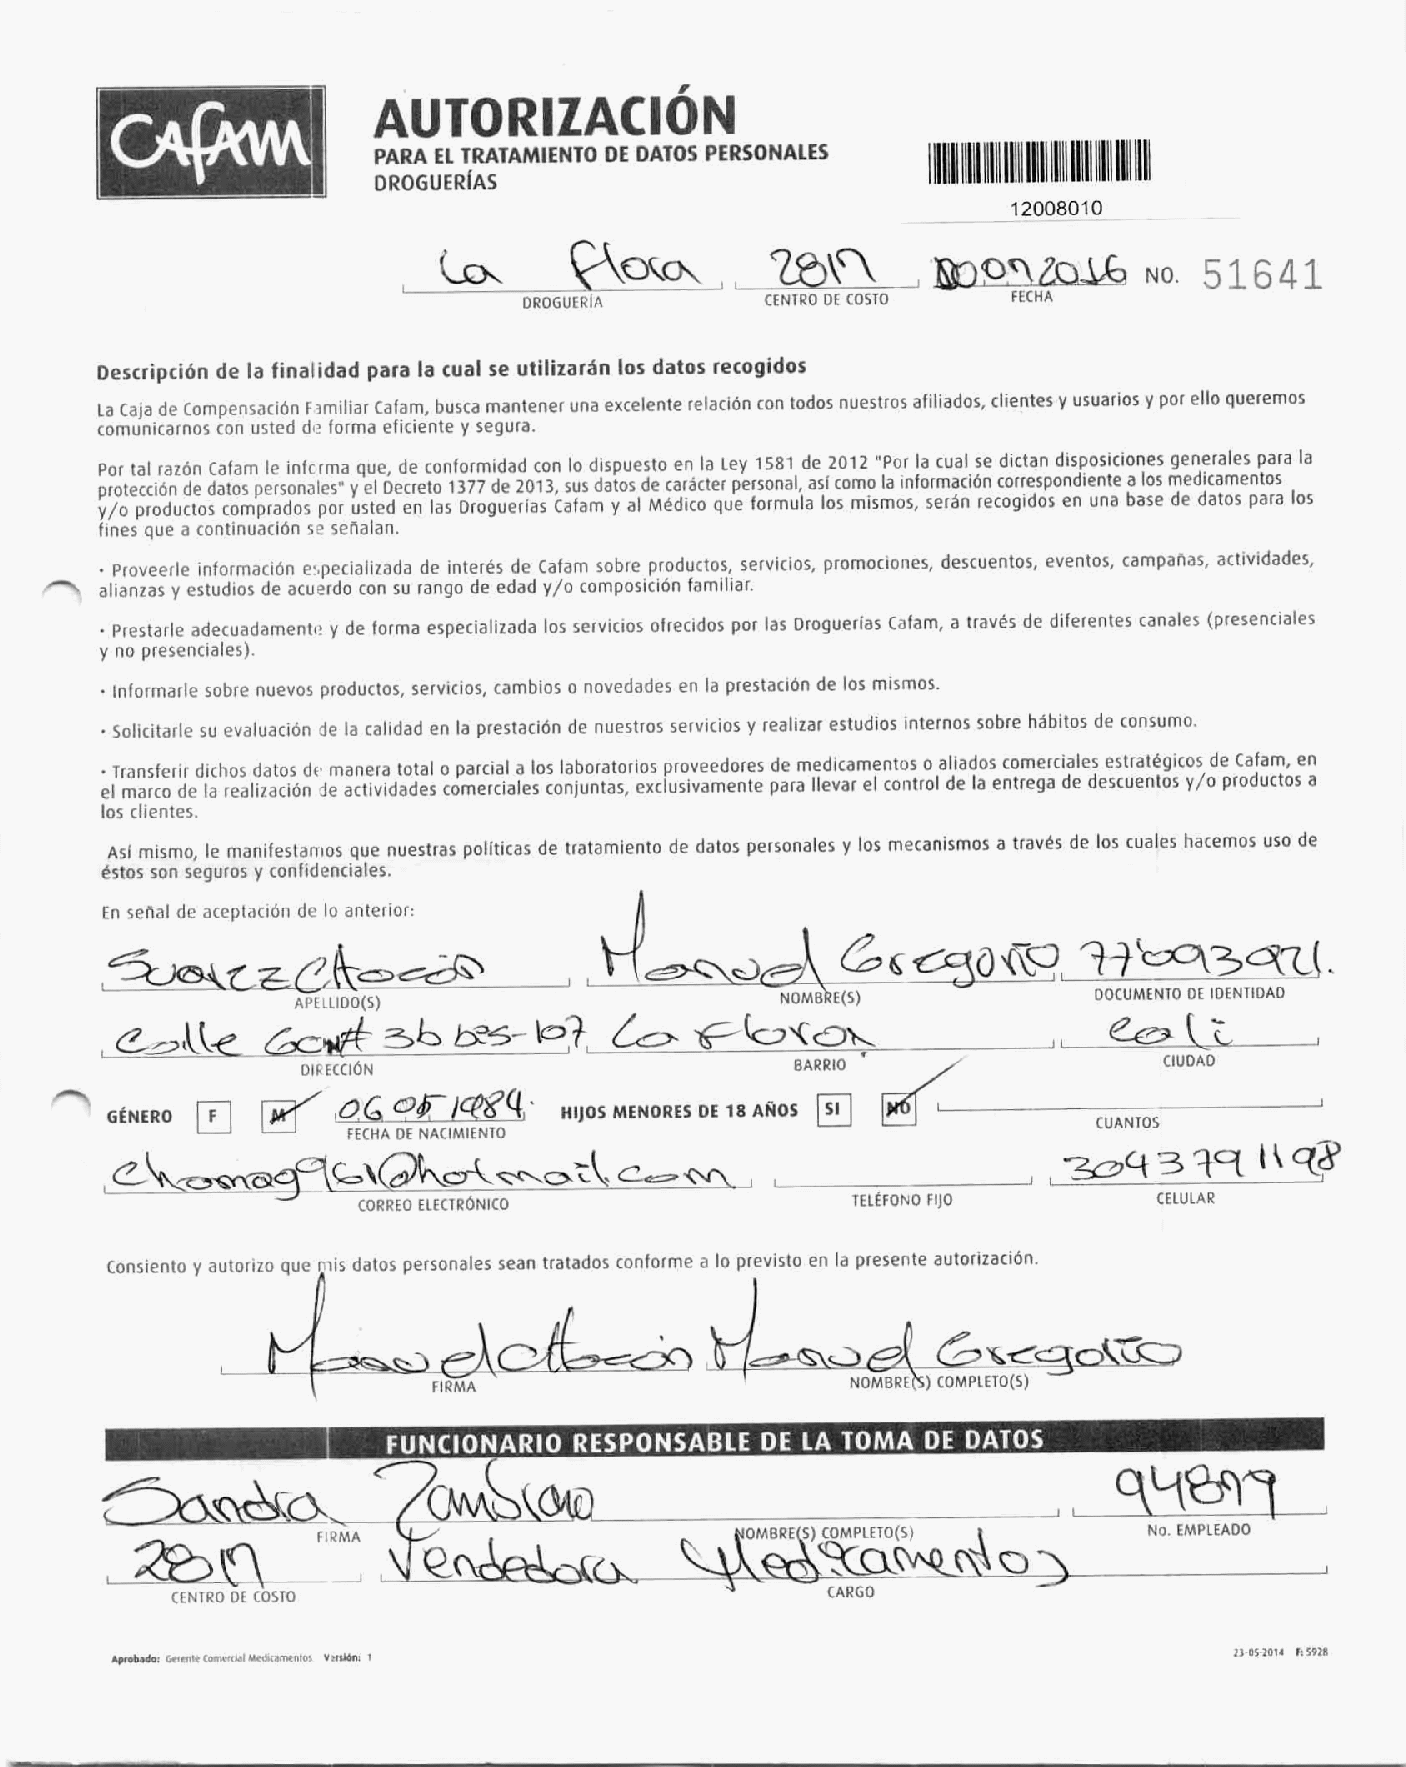 CAFAM
AUTORIZACIÓN
PARA EL TRATAMIENTO DE DATOS PERSONALES
DROGUERÍAS
12008010
La Flora 2817 2016 NO. 51641
DROGUERÍA CENTRO DE COSTO FECHA
Descripción de la finalidad para la cual se utilizarán los datos recogidos
La Caja de Compensación Familiar Cafam, busca mantener una excelente relación con todos nuestros afiliados, clientes y usuarios y por ello queremos
comunicarnos con usted de forma eficiente y segura.
Por tal razón Cafam le informa que, de conformidad con lo dispuesto en la Ley 1581 de 2012 "Por la cual se dictan disposiciones generales para la
protección de datos personales" y el Decreto 1377 de 2013, sus datos de carácter personal, así como la información correspondiente a los medicamentos
y/o productos comprados por usted en las Droguerías Cafam y al Médico que formula los mismos, serán recogidos en una base de datos para los
fines que a continuación se señalan.
· Proveerle información especializada de interés de Cafam sobre productos, servicios, promociones, descuentos, eventos, campañas, actividades,
alianzas y estudios de acuerdo con su rango de edad y/o composición familiar.
· Prestarle adecuadamente y de forma especializada los servicios ofrecidos por las Droguerías Cafam, a través de diferentes canales (presenciales
y no presenciales).
· Informarle sobre nuevos productos, servicios, cambios o novedades en la prestación de los mismos.
· Solicitarle su evaluación de la calidad en la prestación de nuestros servicios y realizar estudios internos sobre hábitos de consumo.
· Transferir dichos datos de manera total o parcial a los laboratorios proveedores de medicamentos o aliados comerciales estratégicos de Cafam, en
el marco de la realización de actividades comerciales conjuntas, exclusivamente para llevar el control de la entrega de descuentos y/o productos a
los clientes.
Así mismo, le manifestamos que nuestras políticas de tratamiento de datos personales y los mecanismos a través de los cuales hacemos uso de
éstos son seguros y confidenciales.
En señal de aceptación de lo anterior:
Suarez Chacón Manuel Gregorio
APELLIDO(S) NOMBRE(S) DOCUMENTO DE IDENTIDAD
Calle # 3b bis-107 La Flora Cali
DIRECCIÓN BARRIO CIUDAD
GÉNERO F M 06 05 1984 HIJOS MENORES DE 18 AÑOS SI NO
FECHA DE NACIMIENTO CUANTOS
chomag961@hotmail.com 3043791198
CORREO ELECTRÓNICO TELÉFONO FIJO CELULAR
Consiento y autorizo que mis datos personales sean tratados conforme a lo previsto en la presente autorización.
Manuel Chacón Manuel Gregorio
FIRMA NOMBRE(S) COMPLETO(S)
FUNCIONARIO RESPONSABLE DE LA TOMA DE DATOS
Sandra Zambrano 94899
FIRMA NOMBRE(S) COMPLETO(S) No. EMPLEADO
2817 Vendedora Medicamentos
CENTRO DE COSTO CARGO
Aprobado: Gerente Comercial Medicamentos Versión: 1 23-05-2014 F: 5928